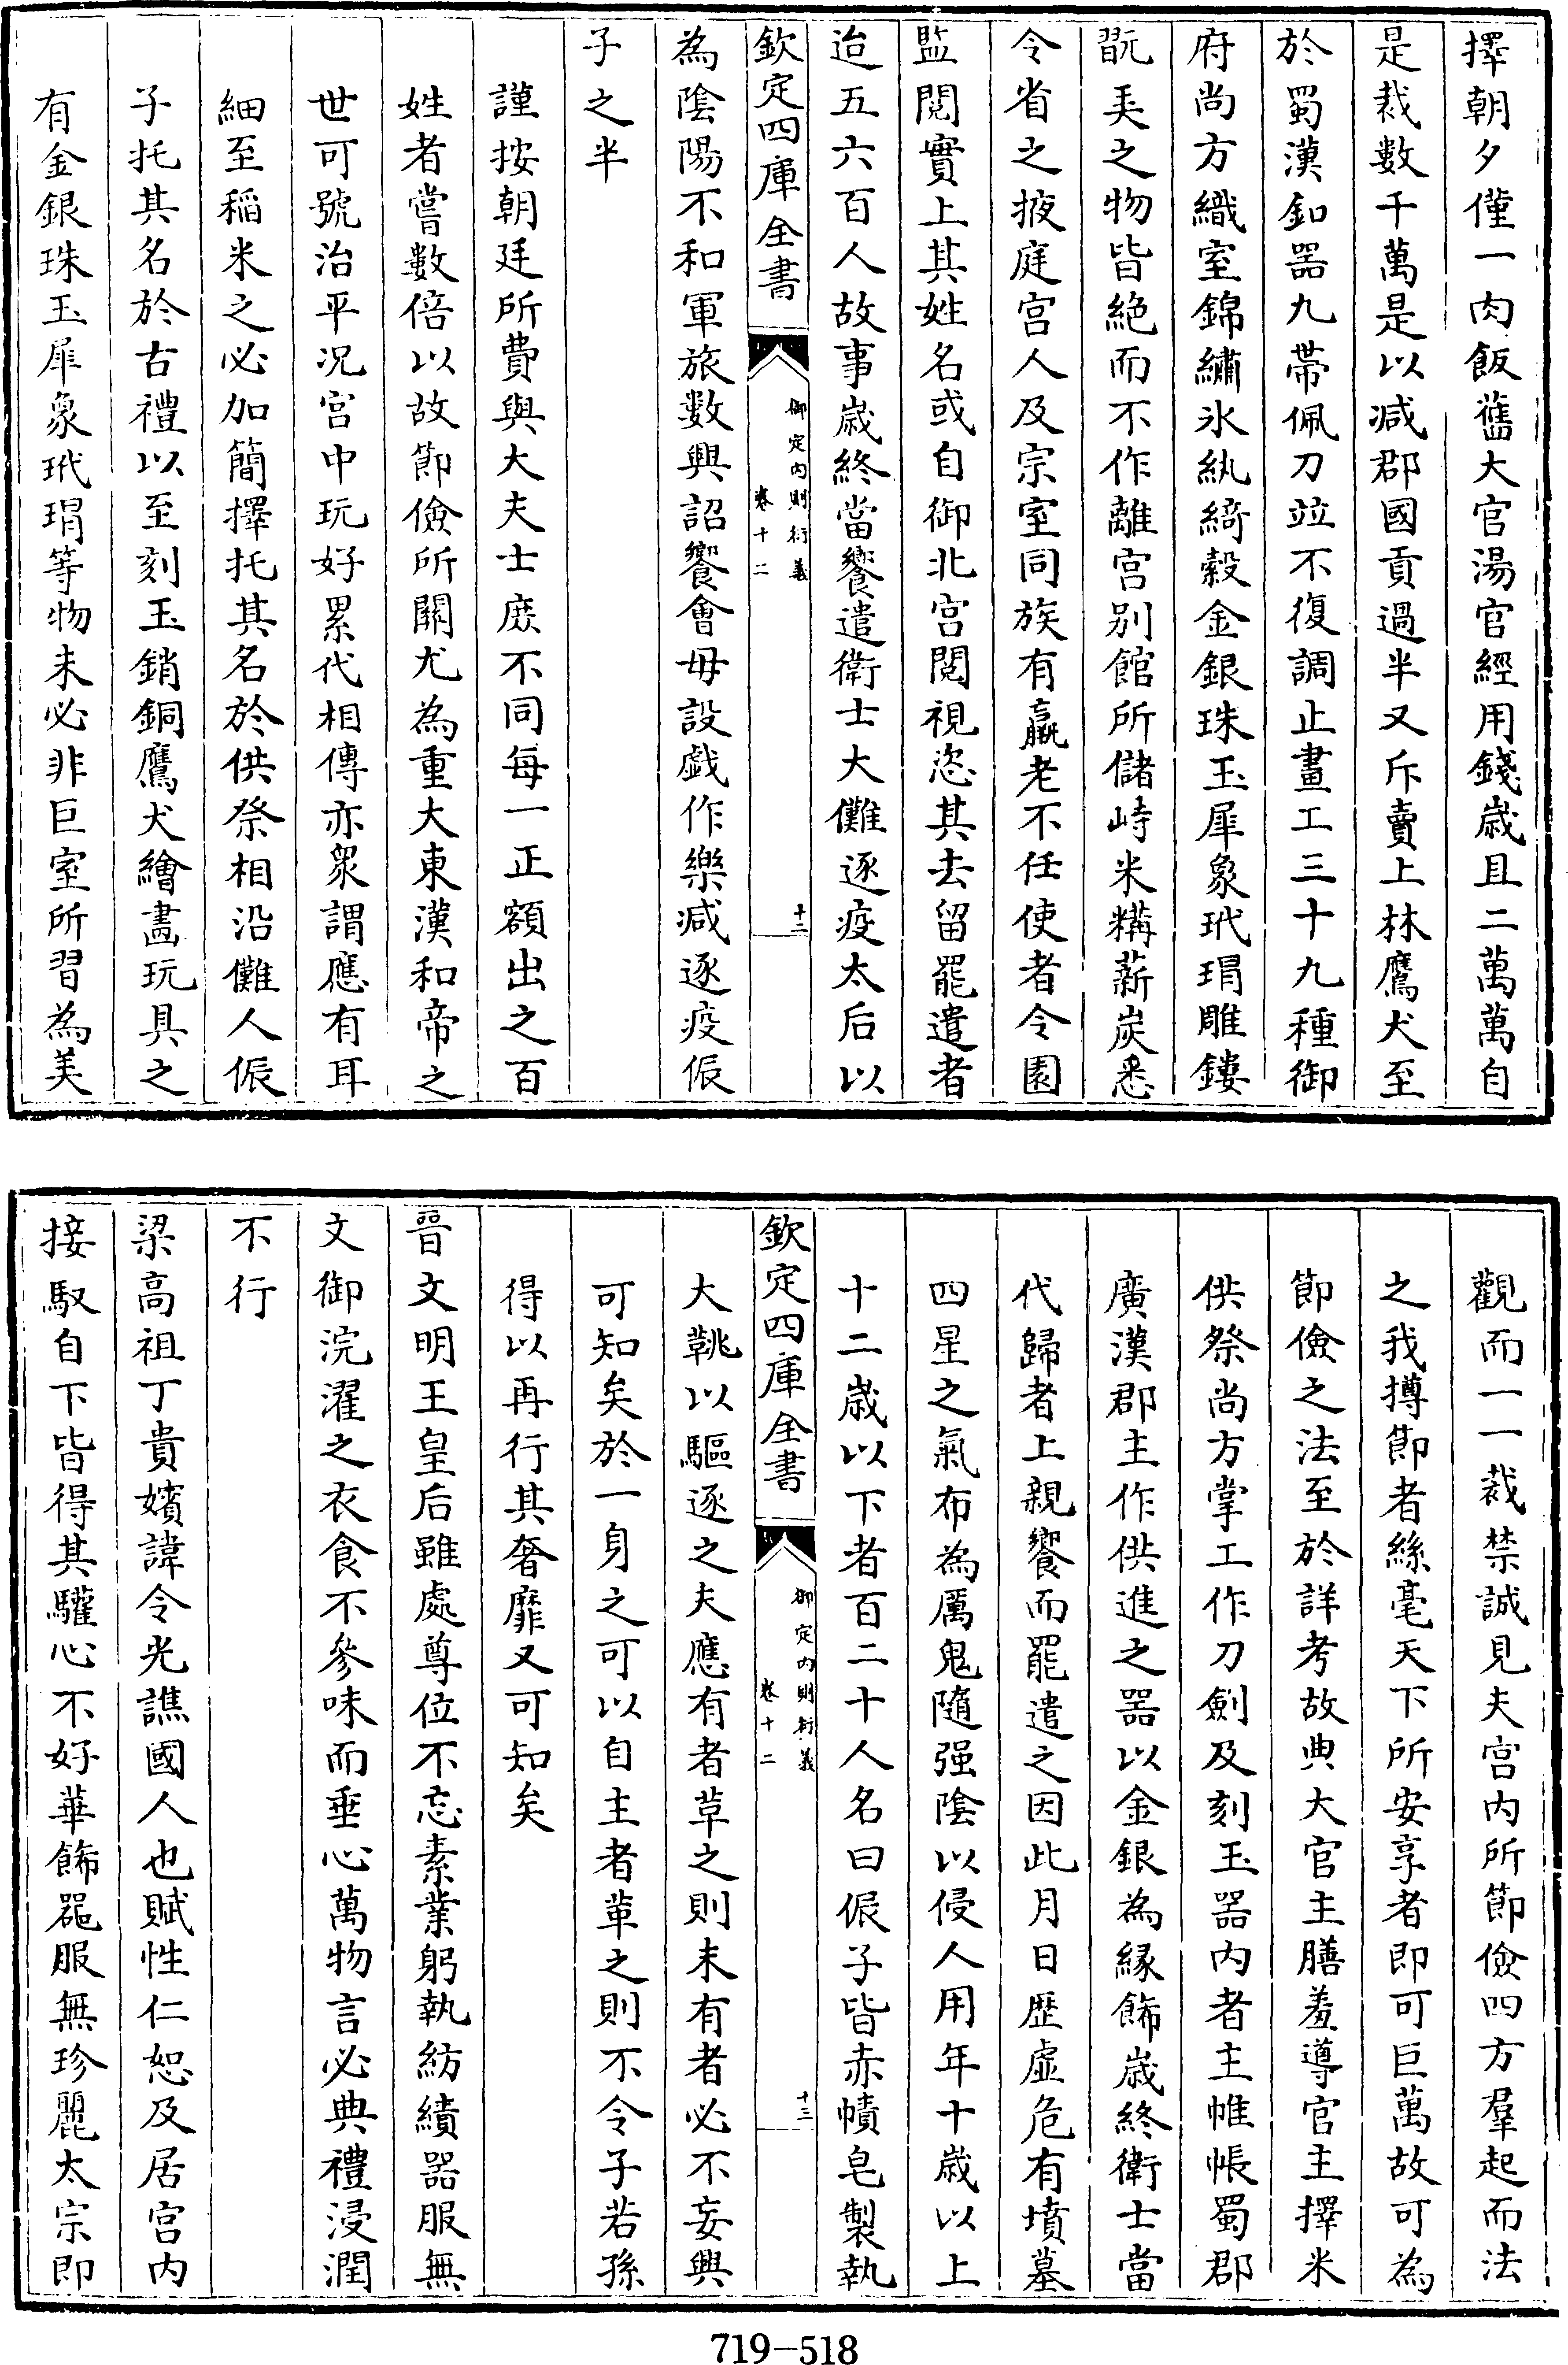 擇朝夕僅一肉飯舊大官湯官經用錢歳且二萬萬自
是裁数千萬是以减郡國貢過半又斥賣上林鷹犬至
於蜀漢釦器九帶佩刀竝不復調止畫工三十九種御
府尚方織室錦繡氷紈綺縠金銀珠玉犀象玳瑁雕鏤
翫美之物皆絶而不作離宫别館所儲峙米糒薪炭悉
令省之掖庭宫人及宗室同族有羸老不任使者令園
監閲實上其姓名或自御北宫閲視恣其去留罷遣者
迨五六百人故事歳終當饗遣衛士大儺逐疫太后以
欽定四庫全書
御定内則衍義
卷十二
十二
為陰陽不和軍旅数興詔饗會毋設戯作樂减逐疫侲
子之半
謹按朝廷所費與大夫士庶不同每一正額出之百
姓者嘗數倍以故節儉所關尤為重大東漢和帝之
世可號治平况宫中玩好累代相傳亦衆謂應有耳
細至稲米之必加簡擇托其名於供祭相沿儺人侲
子托其名於古禮以至刻玉銷銅鷹犬繪畫玩具之
有金銀珠玉犀象玳瑁等物未必非巨室所習為美
觀而一一裁禁誠見夫宫内所節儉四方羣起而法
之我撙節者絲毫天下所安享者即可巨萬故可為
節儉之法至於詳考故典大官主膳羞導官主擇米
供祭尚方掌工作刀劍及刻玉器内者主帷帳蜀郡
廣漢郡主作供進之器以金銀為縁飾歳終衛士當
代歸者上親饗而罷遣之因此月日歴虚危有墳墓
四星之氣布為厲鬼隨强陰以侵人用年十歳以上
十二歳以下者百二十人名曰侲子皆赤幘皂製執
欽定四庫全書
御定内則衍義
卷十二
十三
大鞉以驅逐之夫應有者草之則未有者必不妄興
可知矣於一身之可以自主者革之則不令子若孫
得以再行其奢靡又可知矣
晉文明王皇后雖處尊位不忘素業躬執紡績器服無
文御浣濯之衣食不參味而垂心萬物言必典禮浸潤
不行
梁高祖丁貴嬪諱令光譙國人也賦性仁恕及居宫内
接馭自下皆得其驩心不好華飾器服無珍麗太宗即
719-518